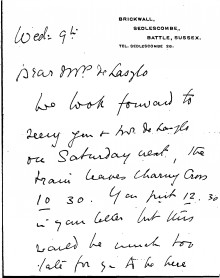 BRICKWALL,
SEDLESCOMBE,
BATTLE, SUSSEX.
TEL. SEDLESCOMBE 20.
Wed: 9th
Dear Mrs de Laszlo
We look forward to
seeing you & Mr. de Laszlo
on Saturday next, the
train leaves Charing Cross
10 30. You put 12. 30
in your letter but this
would be much too
late for you to be here